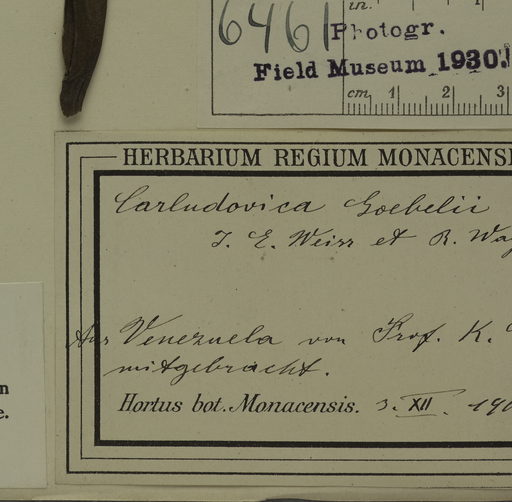 6461
in. 1
Photogr.
Field Museum 1930.
cm. 1 2 3
HERBARIUM REGIUM MONACENS
Carludovica Goebelii
J. E. Weiss et R. Wag
Aus Venezuela von Prof. K.
mitgebracht.
n
e.
Hortus bot. Monacensis. 3. XII. 190